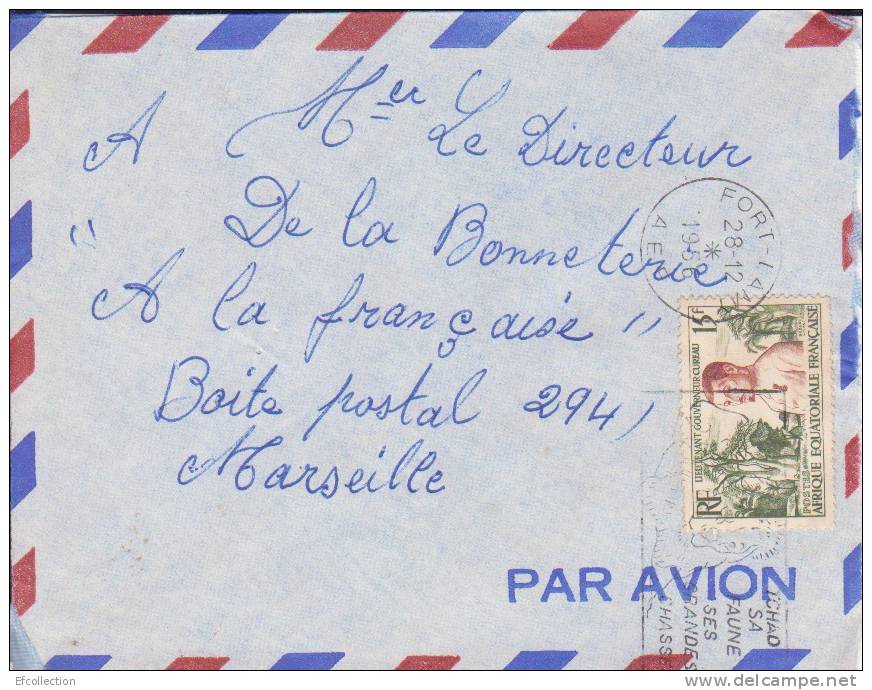 A Mer Le Directeur
De la Bonneterie
" A la française "
Boite postal 294,
Marseille
FORT-LAMY
28-12
1956
A E F
15F
LIEUTENANT GOUVERNEUR CUREAU
RF
POSTES
AFRIQUE EQUATORIALE FRANÇAISE
PAR AVION
TCHAD
SA
FAUNE
SES
GRANDES
CHASSES
Efcollection
www.delcampe.net